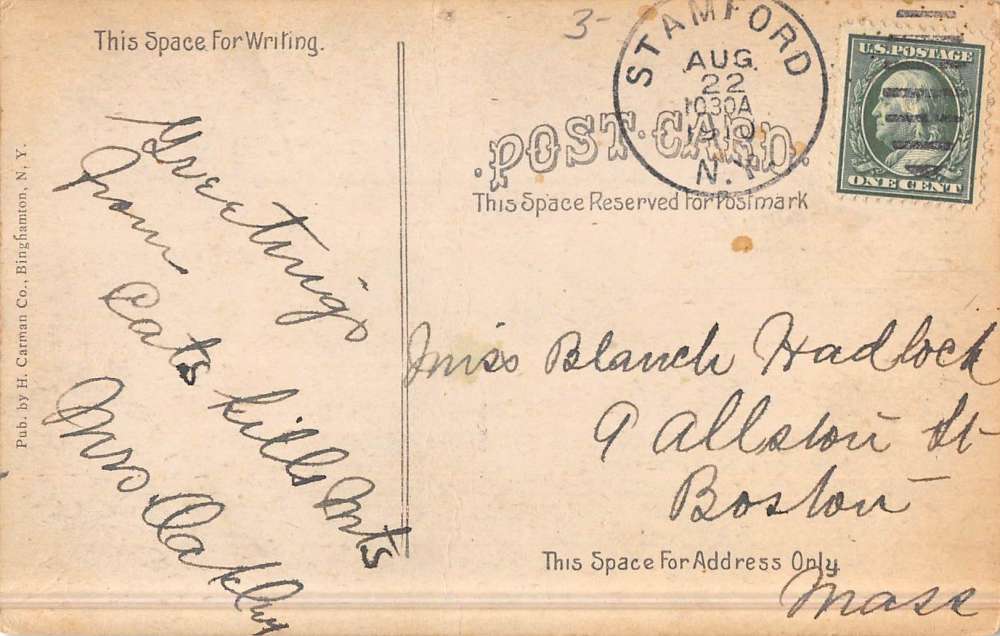 This Space For Writing.
Greetings
from
Catskills Mts
Mrs. Oakley
Pub. by H. Carman Co., Binghamton, N. Y.
3-
STAMFORD
AUG.
22
1030A
1910
N.Y.
U.S. POSTAGE
ONE CENT
POST CARD.
This Space Reserved For Postmark
Miss Blanch Hadlock
9 Allston St
Boston
This Space For Address Only.
Mass